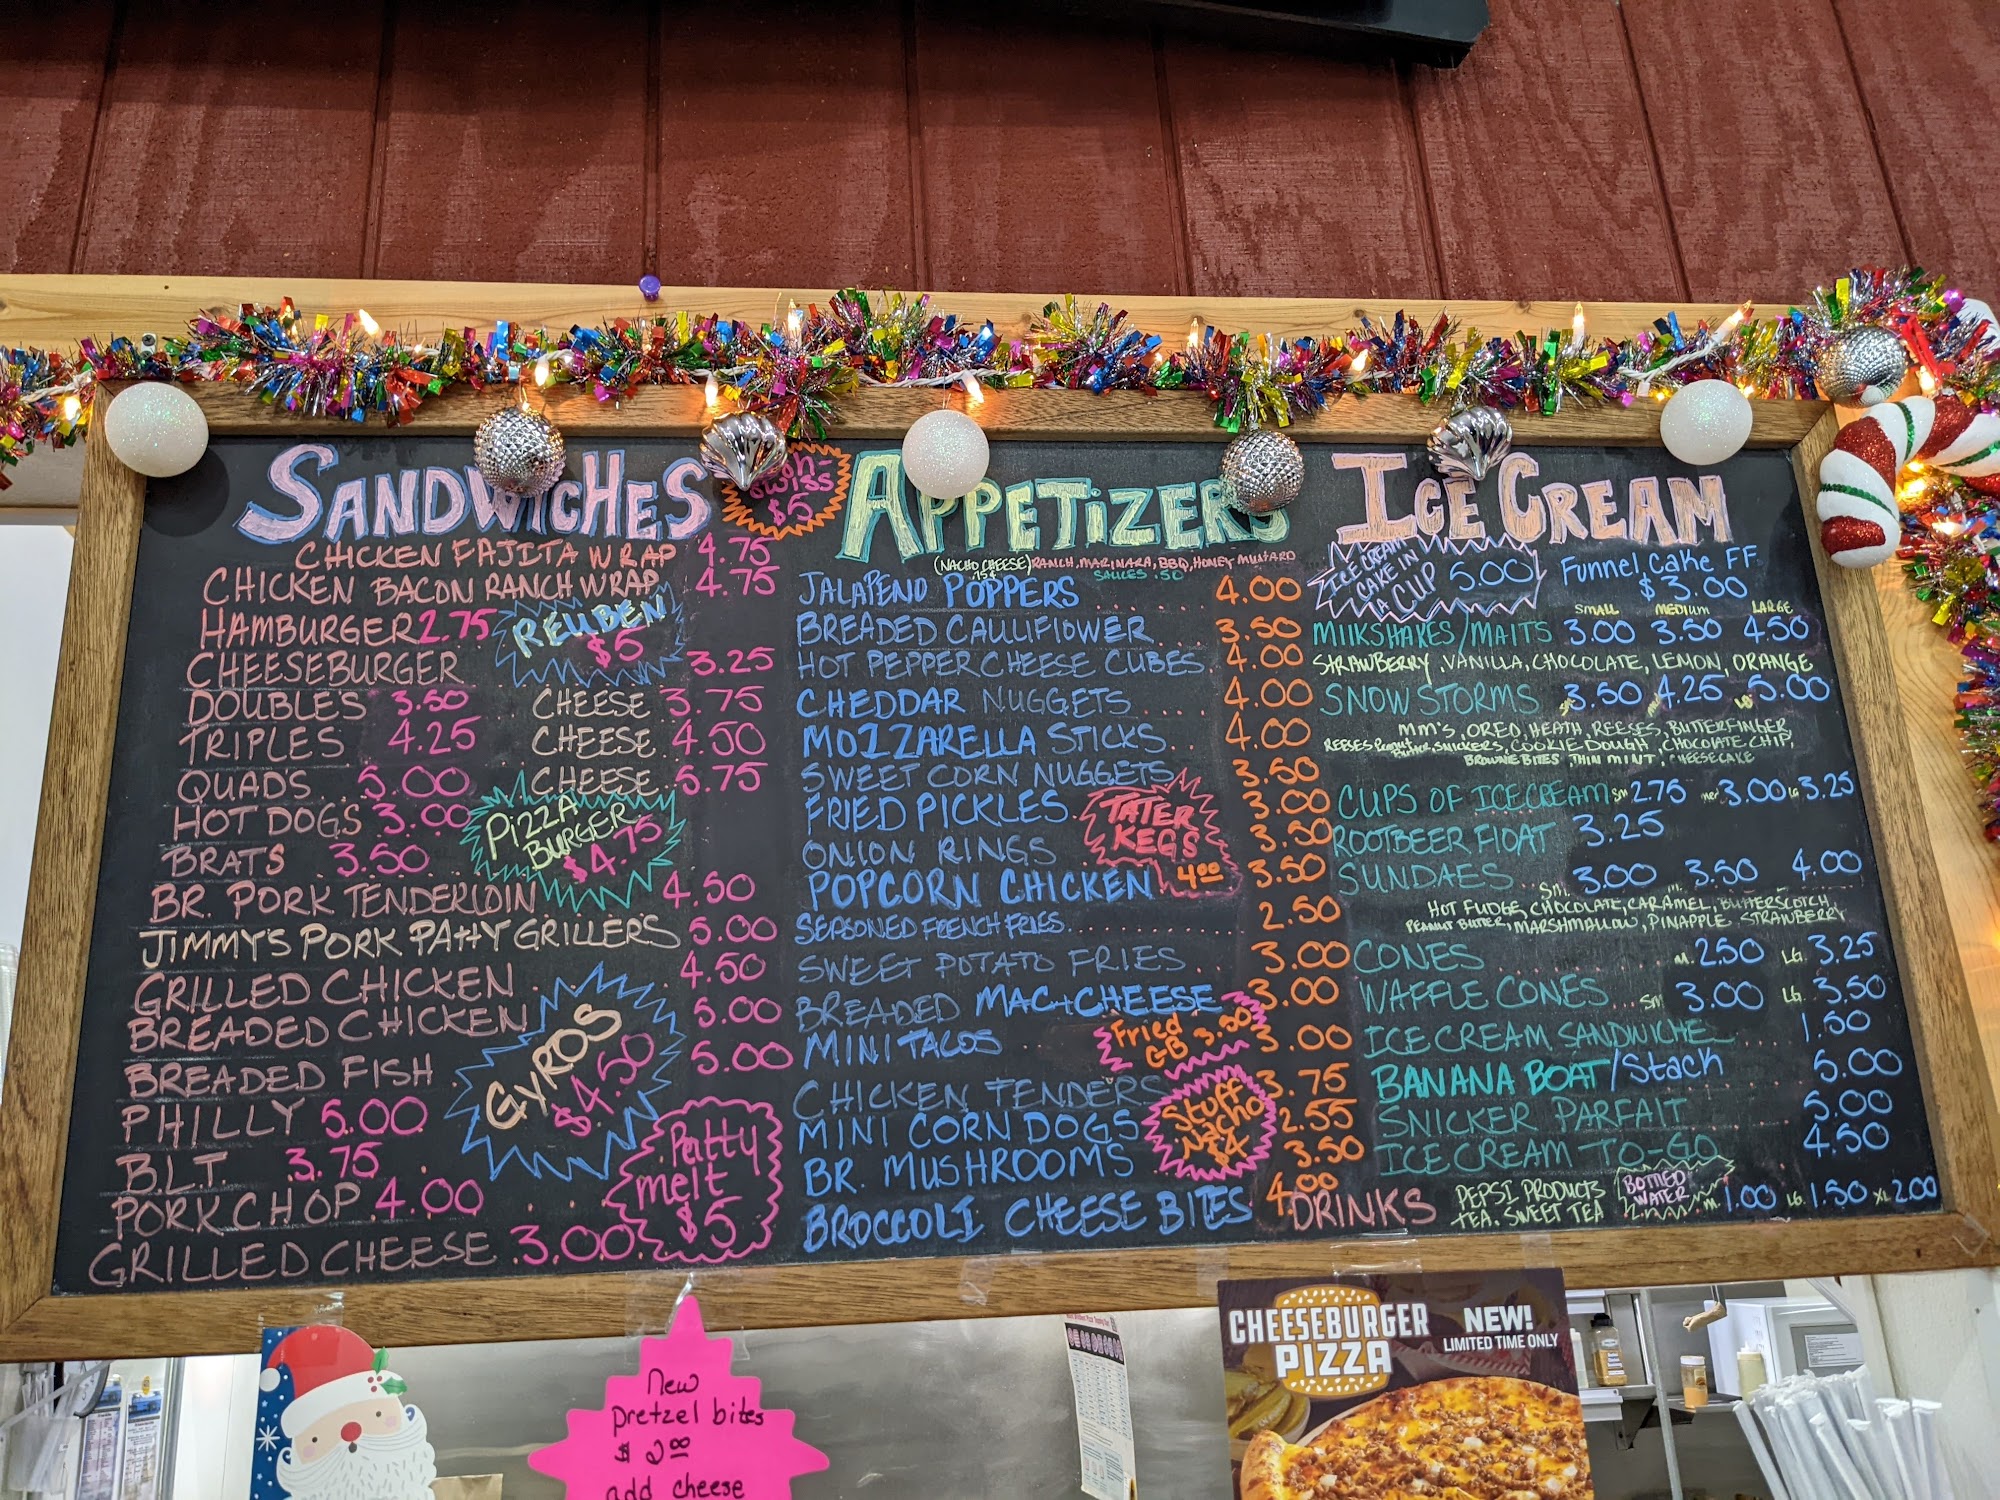 SANDWICHES
CHICKEN FAJITA WRAP 4.75
CHICKEN BACON RANCH WRAP 4.75
HAMBURGER 2.75
REUBEN
$5
CHEESEBURGER 3.25
DOUBLES 3.50 CHEESE 3.75
TRIPLES 4.25 CHEESE 4.50
QUADS 5.00 CHEESE 5.75
HOT DOGS 3.00
PIZZA
BURGER
$4.75
BRATS 3.50
BR. PORK TENDERLOIN 4.50
JIMMY'S PORK PATTY GRILLERS 5.00
GRILLED CHICKEN 4.50
BREADED CHICKEN 5.00
BREADED FISH 5.00
GYROS
$4.50
PHILLY 5.00
B.L.T. 3.75
PORK CHOP 4.00
GRILLED CHEESE 3.00
Patty
melt
$5
SWISS
$5
APPETIZERS
(NACHO CHEESE) RANCH, MARINARA, BBQ, HONEY MUSTARD
.75¢ SAUCES .50
JALAPENO POPPERS 4.00
BREADED CAULIFLOWER 3.50
HOT PEPPER CHEESE CUBES 4.00
CHEDDAR NUGGETS 4.00
MOZZARELLA STICKS 4.00
SWEET CORN NUGGETS 3.50
FRIED PICKLES 3.00
TATER
KEGS
4.00
ONION RINGS 3.50
POPCORN CHICKEN 3.50
SEASONED FRENCH FRIES 2.50
SWEET POTATO FRIES 3.00
BREADED MAC+CHEESE 3.00
MINI TACOS 3.00
Fried
GB 3.50
CHICKEN TENDERS 3.75
MINI CORN DOGS 2.55
Stuff
Nacho
$4
BR. MUSHROOMS 3.50
BROCCOLI CHEESE BITES 4.00
ICE CREAM
ICE CREAM
CAKE IN
A CUP 5.00
Funnel Cake FF
$3.00
SMALL MEDIUM LARGE
MILKSHAKES/MALTS 3.00 3.50 4.50
STRAWBERRY, VANILLA, CHOCOLATE, LEMON, ORANGE
SNOW STORMS 3.50 4.25 5.00
MM'S, OREO, HEATH, REESES, BUTTERFINGER
REESES Peanut Butter, SNICKERS, COOKIE DOUGH, CHOCOLATE CHIP,
BROWNIE BITES, THIN MINT, CHEESECAKE
CUPS OF ICE CREAM SM 2.75 MED 3.00 LG 3.25
ROOTBEER FLOAT 3.25
SUNDAES SM. 3.00 3.50 4.00
HOT FUDGE, CHOCOLATE, CARAMEL, BUTTERSCOTCH,
PEANUT BUTTER, MARSHMALLOW, PINAPPLE STRAWBERRY
CONES M. 2.50 LG. 3.25
WAFFLE CONES SM 3.00 LG. 3.50
ICE CREAM SANDWICHE 1.50
BANANA BOAT/Stack 5.00
SNICKER PARFAIT 5.00
ICE CREAM TO-GO 4.50
DRINKS
PEPSI PRODUCTS
TEA, SWEET TEA
BOTTLED
WATER
M. 1.00 LG. 1.50 XL 2.00
New
pretzel bites
$ 2.00
add cheese
CHEESEBURGER
PIZZA
NEW!
LIMITED TIME ONLY